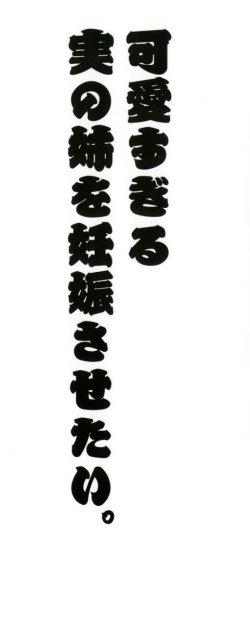 可愛すぎる
実の姉を妊娠させたい。